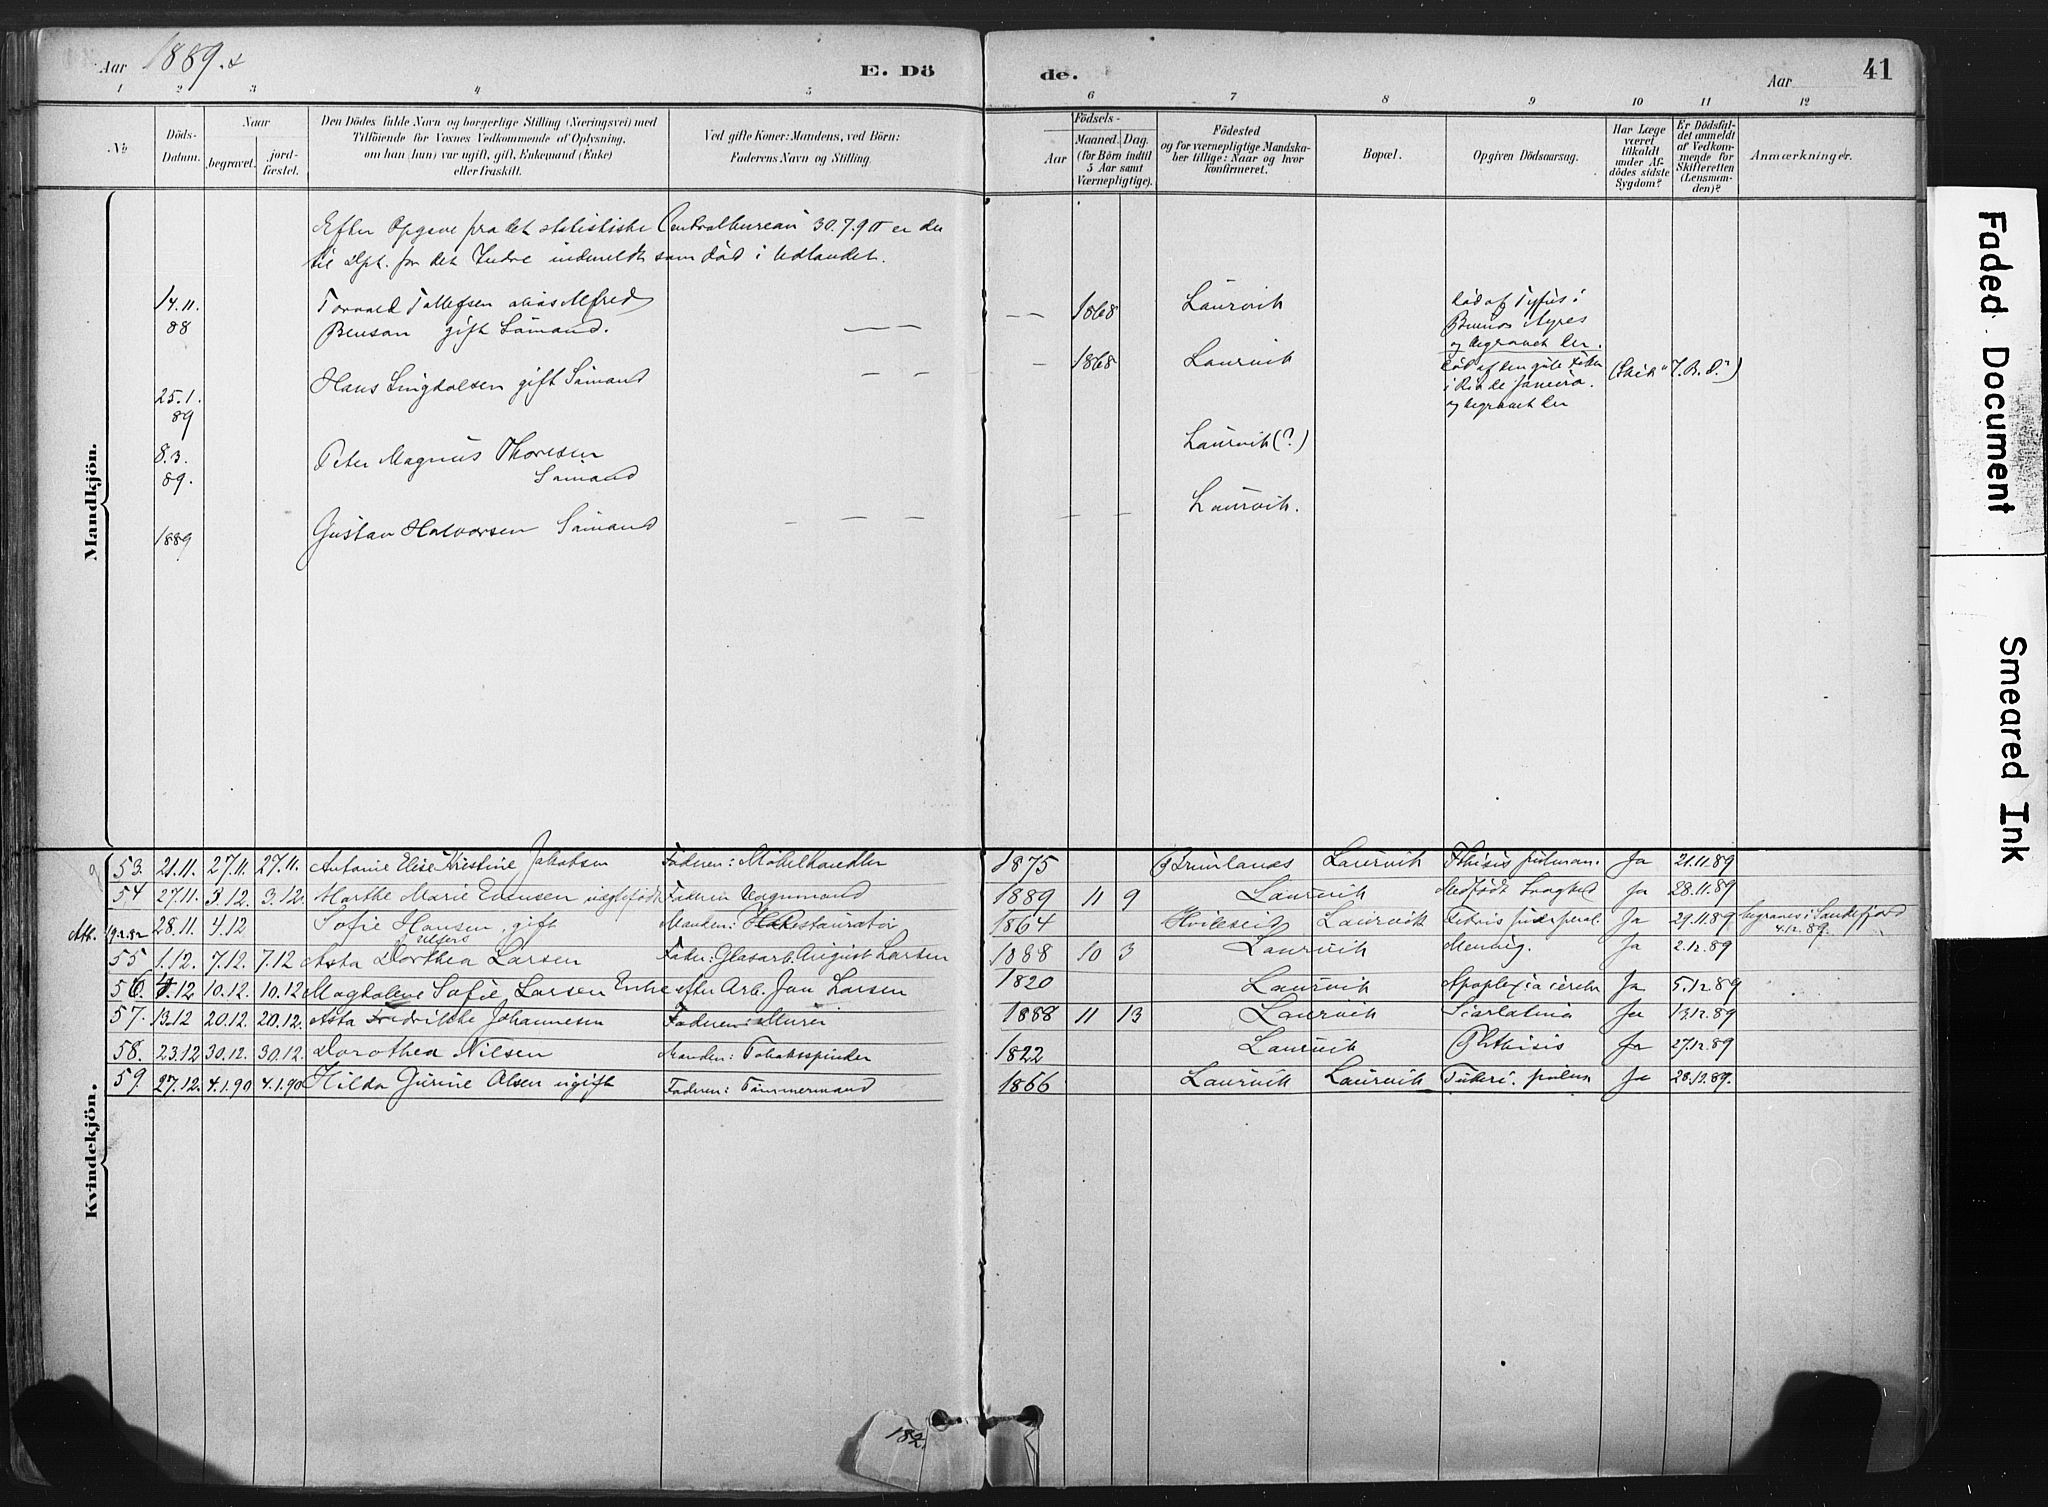 Aar 1889.
E. Dö
de.
Aar
41
1 2 3 4 5 6 7 8 9 10 11 12
No
Döds-
Datum.
Naar
begravet.
jord-
fæstet.
Den Dödes fulde Navn og borgerlige Stilling (Næringsvei) med
Tilföiende for Voxnes Vedkommende af Oplysning,
om han (hun) var ugift, gift, Enkemand (Enke)
eller fraskilt.
Ved gifte Koner: Mandens, ved Börn:
Faderens Navn og Stilling.
Födsels-
Aar
Maaned.
Dag.
(for Börn indtil
5 Aar samt
Værnepligtige).
Födested
og for værnepligtige Mandska-
ber tillige: Naar og hvor
konfirmeret.
Bopæl.
Opgiven Dödsaarsag.
Har Læge
været
tilkaldt
under Af-
dödes sidste
Sygdom?
Er Dödsfal-
det anmeldt
af Vedkom-
mende for
Skifteretten
(Lensman-
den)?
Anmærkninger.
Mandkjön.
Efter Opgave fra det statistiske Centralbureau 30.7.90 er der
til Dpt. for det Indre indmeldt som död i Udlandet.
14.11.
88
Torvald Tollefsen alias Alfred
Benson gift Sömand.
— —
— —
1868
Laurvik
död af Tyfus i
Buenos Ayres
og begravet der.
25.1.
89
Hans Lingdalsen gift Sömand
— — —
—
1868
Laurvik
död af den gule Feber
i Rio de Janeiro.
og begravet der
(Skib "J.B.D.")
8.3.
89.
Peter Magnus Thoresen
Sömand
Laurvik (?)
1889
Gustav Halvorsen Sömand
— — —
— —
Laurvik.
Kvindekjön.
53. 21.11. 27.11. 27.11. Antonie Elise Kristine Jakobsen Faderen: Möbelhandler 1875 Brunlanæs Laurvik Fthisis pulmon. Ja 21.11.89
54 27.11. 3.12. 3.12. Marthe Marie Evensen uægtefödt Faderen Vognmand 1889 11 9 Laurvik Medfödt Svaghed Ja 28.11.89
Att. 19.2.82 28.11. 4.12 Sofie Hansen, gift Manden: Restauratör 1864 Hvideseid Laurvik Febris puerperal. Ja 29.11.89 begraves i Sandefjord
4.12.89.
55 1.12. 7.12. 7.12 Asta Dorthea Larsen Fader: Glasarb. August Larsen 1888 10 3 Laurvik Mening. Ja 2.12.89
56. 4.12 10.12. 10.12 Magdalene Sofie Larsen Enke efter Arb. Jan Larsen 1820 Laurvik Apoplexia cerebri Ja 5.12.89
57. 13.12 20.12. 20.12. Asta Fredrikke Johannesen Faderen: Murer 1888 11 13 Laurvik Scarlatina Ja 13.12.89
58. 23.12 30.12. 30.12. Dorothea Nilsen Manden: Tobaksspinder 1822 Laurvik Phthisis Ja 27.12.89
59. 27.12. 4.1.90 4.1.90 Hilda Gurine Olsen ugift Faderen: Tömmermand 1866 Laurvik Laurvik Tuberc. pulm Ja 28.12.89.
182.
Faded Document
Smeared Ink